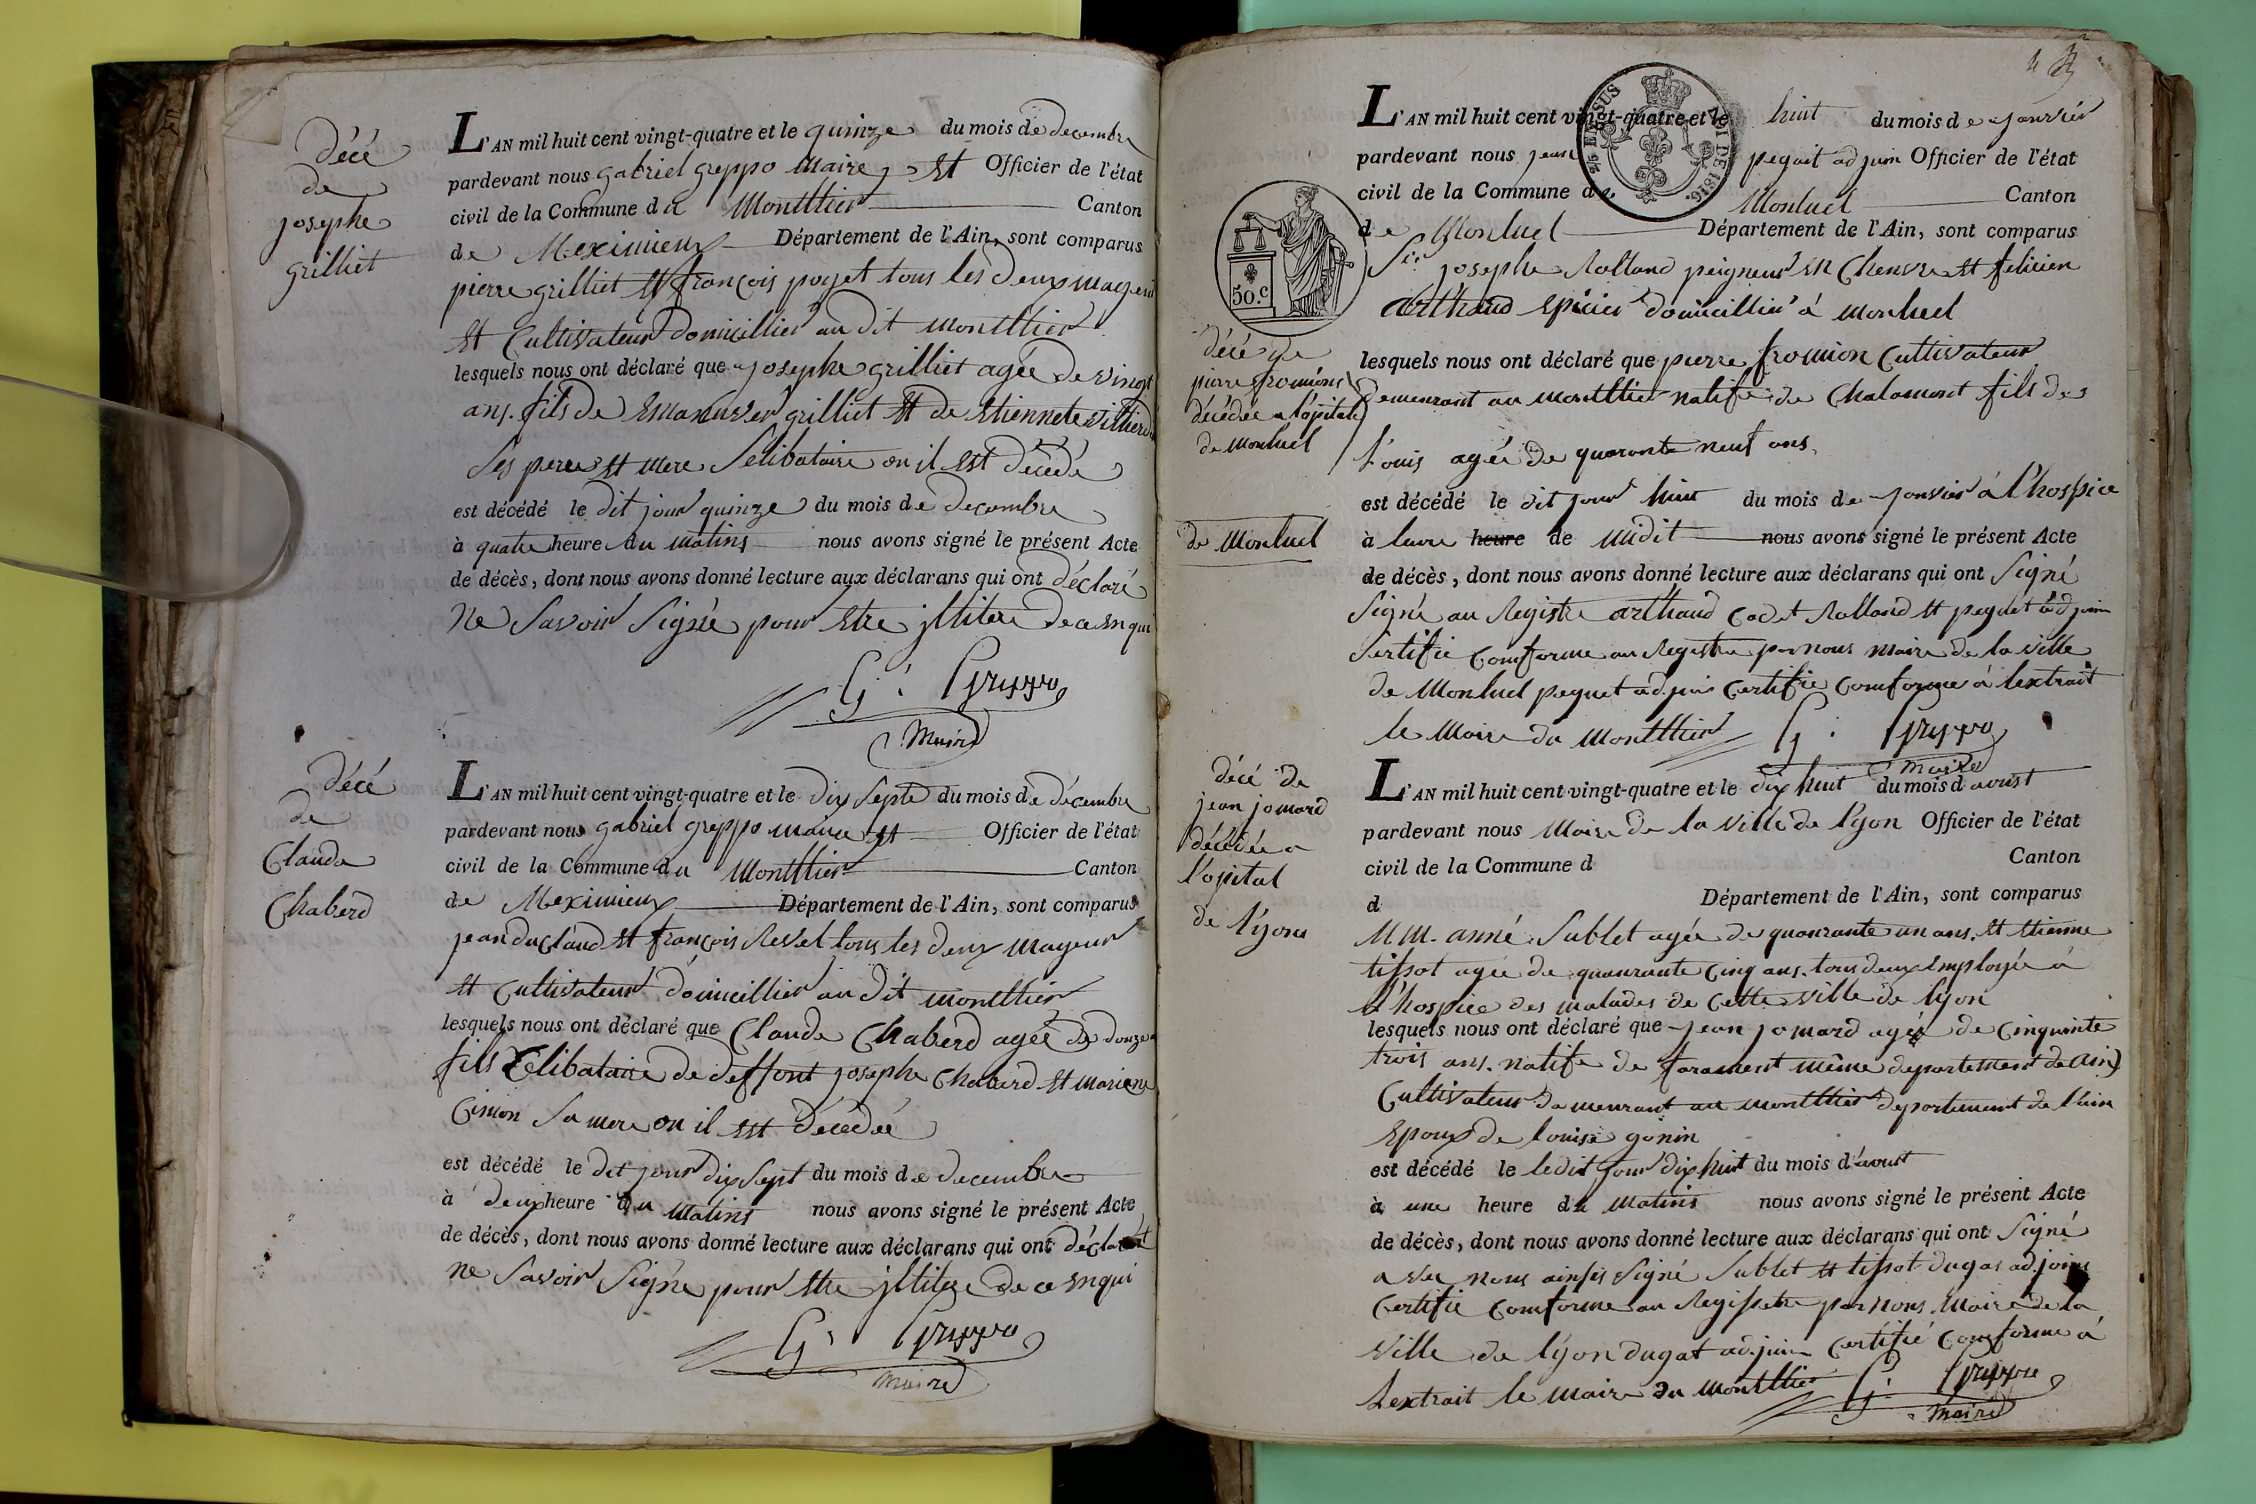 Décé
de
josephe
grilliet
L'AN mil huit cent vingt-quatre et le quinze du mois de decembre
pardevant nous gabriel greppo maire et Officier de l'état
civil de la Commune du Montthier Canton
de Meximieux Département de l'Ain, sont comparus
pierre grilliet et françois poget tous les deux mayeur
et Cultivateur domicillier au dit montthier
lesquels nous ont déclaré que josephe grilliet agée de vingt
ans. fils de grilliet et de Etiennete
Ses pere et mere Selibataire ou il est décédé
est décédé le dit jour quinze du mois de decembre
à quatre heure du matins nous avons signé le présent Acte
de décès, dont nous avons donné lecture aux déclarans qui ont déclaré
Ne Savoir Signée pour Etre jlliterée de ce Enqui
G. Greppo
Maire
décé
de
Claude
Chaberd
L'AN mil huit cent vingt-quatre et le dix septe du mois de décembre
pardevant nous gabriel greppo maire et Officier de l'état
civil de la Commune du Montthier Canton
de Meximieux Département de l'Ain, sont comparus
jean duclaud et françois Revel tous les deux mayeur
et Cultivateur domicillier au dit montthier
lesquels nous ont déclaré que Claude Chaberd agée de douze
fils Célibataire de deffont josephe Chaberd et mariene
Cimon Sa mere ou il est décédée
est décédé le dit jour dix sept du mois de decembre
à deux heure du matins nous avons signé le présent Acte
de décès, dont nous avons donné lecture aux déclarans qui ont déclaré
ne Savoir Signée pour Etre jlliterée de ce Enqui
G. Greppo
maire
25 EN SUS
LOI DE 1816.
50.c
L'AN mil huit cent vingt-quatre et le huit du mois de janvier
pardevant nous jean peguet adjoin Officier de l'état
civil de la Commune de Monluel Canton
de Monluel Département de l'Ain, sont comparus
Sr. josephe Rolland peigneur en Chenvre et felicien
Arthaud Epicier domicillier à monluel
décé de
pierre fromion
décédée a l'opital
de monluel
lesquels nous ont déclaré que pierre fromion Cultivateur
Demeurant au montthier natife de Chalamont fils de
Louis agée de quarante neuf ans.
est décédé le dit jour huit du mois de janvier à l'hospice
de Monluel
à heure de midit nous avons signé le présent Acte
de décès, dont nous avons donné lecture aux déclarans qui ont Signé
Signé au Registre arthaud Cadet Rolland et peguet adjoin
Sertifie Comforme au Registre par nous maire de la ville
de Monluel peguet adjoin Certifie Comforme à lextrait
le Maire du Montthier G. Greppo
Maire
décé de
jean jomard
décédée a
l'opital
de lyon
L'AN mil huit cent vingt-quatre et le dix huit du mois d aoust
pardevant nous Maire de la ville de lyon Officier de l'état
civil de la Commune d Canton
d Département de l'Ain, sont comparus
MM. anné Sublet agée de quaurante un ans. et Etienne
tissot agée de quaurante Cinq ans. tous deux Employée à
l'hospice des malades de Cette ville de lyon
lesquels nous ont déclaré que jean jomard agée de Cinquinte
trois ans. natife de farament même departement de Ain
Cultivateur demeurant au montthier departement de l'ain
Epoux de louise gonin
est décédé le ledit jour dix huit du mois d'aoust
à une heure du matins nous avons signé le présent Acte
de décès, dont nous avons donné lecture aux déclarans qui ont Signé
avec nous ainsis Signé Sublet et tissot dugas adjoins
Certifie Comforme au Registre par nous Maire de la
Ville de lyon dugat adjoin Certifié Comforme à
Lextrait le maire du montthier G. Greppo
Maire